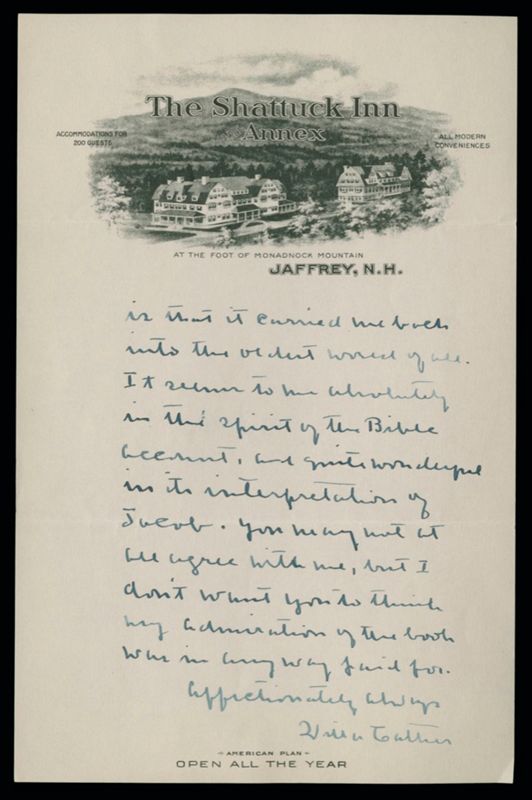 The Shattuck Inn
and Annex
ACCOMMODATIONS FOR
200 GUESTS
ALL MODERN
CONVENIENCES
AT THE FOOT OF MONADNOCK MOUNTAIN
JAFFREY, N.H.
is that it carried me back
into the oldest world of all.
It seems to me absolutely
in the spirit of the Bible
account, and quite wonderful
in its interpretation of
Jacob. You may not at
all agree with me, but I
don't want you to think
my admiration of the book
was in any way paid for.
Affectionately always
Willa Cather
AMERICAN PLAN
OPEN ALL THE YEAR